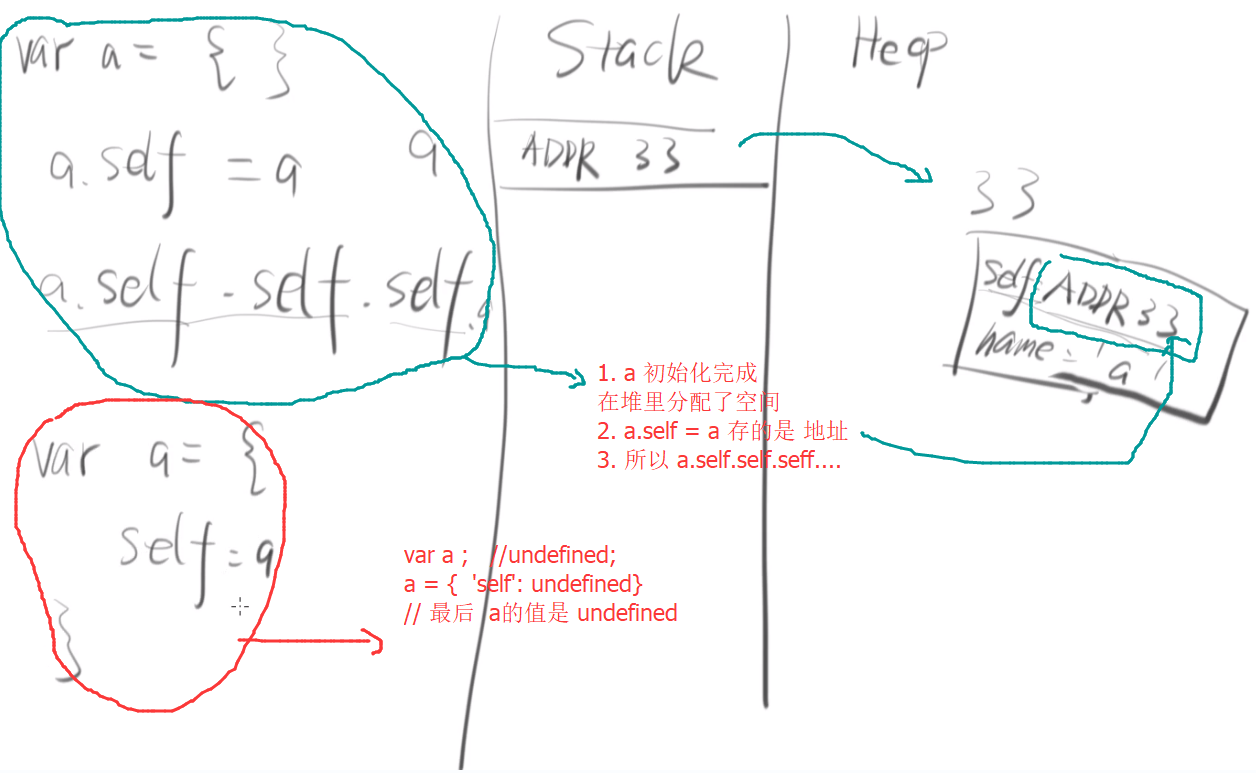 var a = { }
a.self = a
a
a.self.self.self.
Stack
ADDR 33
Heap
33
self ADDR 33
name = 'a'
1. a 初始化完成
在堆里分配了空间
2. a.self = a 存的是 地址
3. 所以 a.self.self.seff....
var a = {
self = a
}
var a ; //undefined;
a = { 'self': undefined}
// 最后 a的值是 undefined